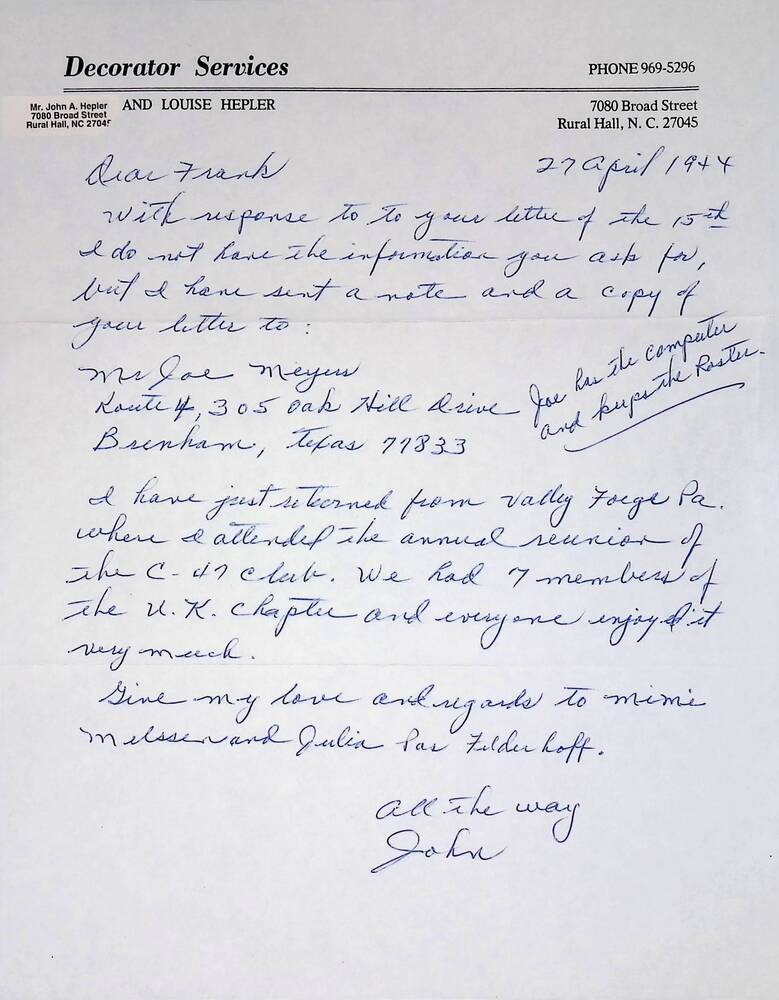 Decorator Services
PHONE 969-5296
Mr. John A. Hepler
7080 Broad Street
Rural Hall, NC 27045
AND LOUISE HEPLER
7080 Broad Street
Rural Hall, N. C. 27045
Dear Frank
27 April 1944
With response to to your letter of the 15th
I do not have the information you ask for,
but I have sent a note and a copy of
your letter to:
Mr Joe Meyers
Route 4, 305 Oak Hill Drive
Brenham, Texas 77833
Joe has the computer
and keeps the Roster.
I have just returned from Valley Forge Pa.
where I attended the annual reunion of
the C-47 Club. We had 7 members of
the U.K. Chapter and everyone enjoyed it
very much.
Give my love and regards to Mimi
Melssen and Julia Pas Felderhoff.
All the way
John